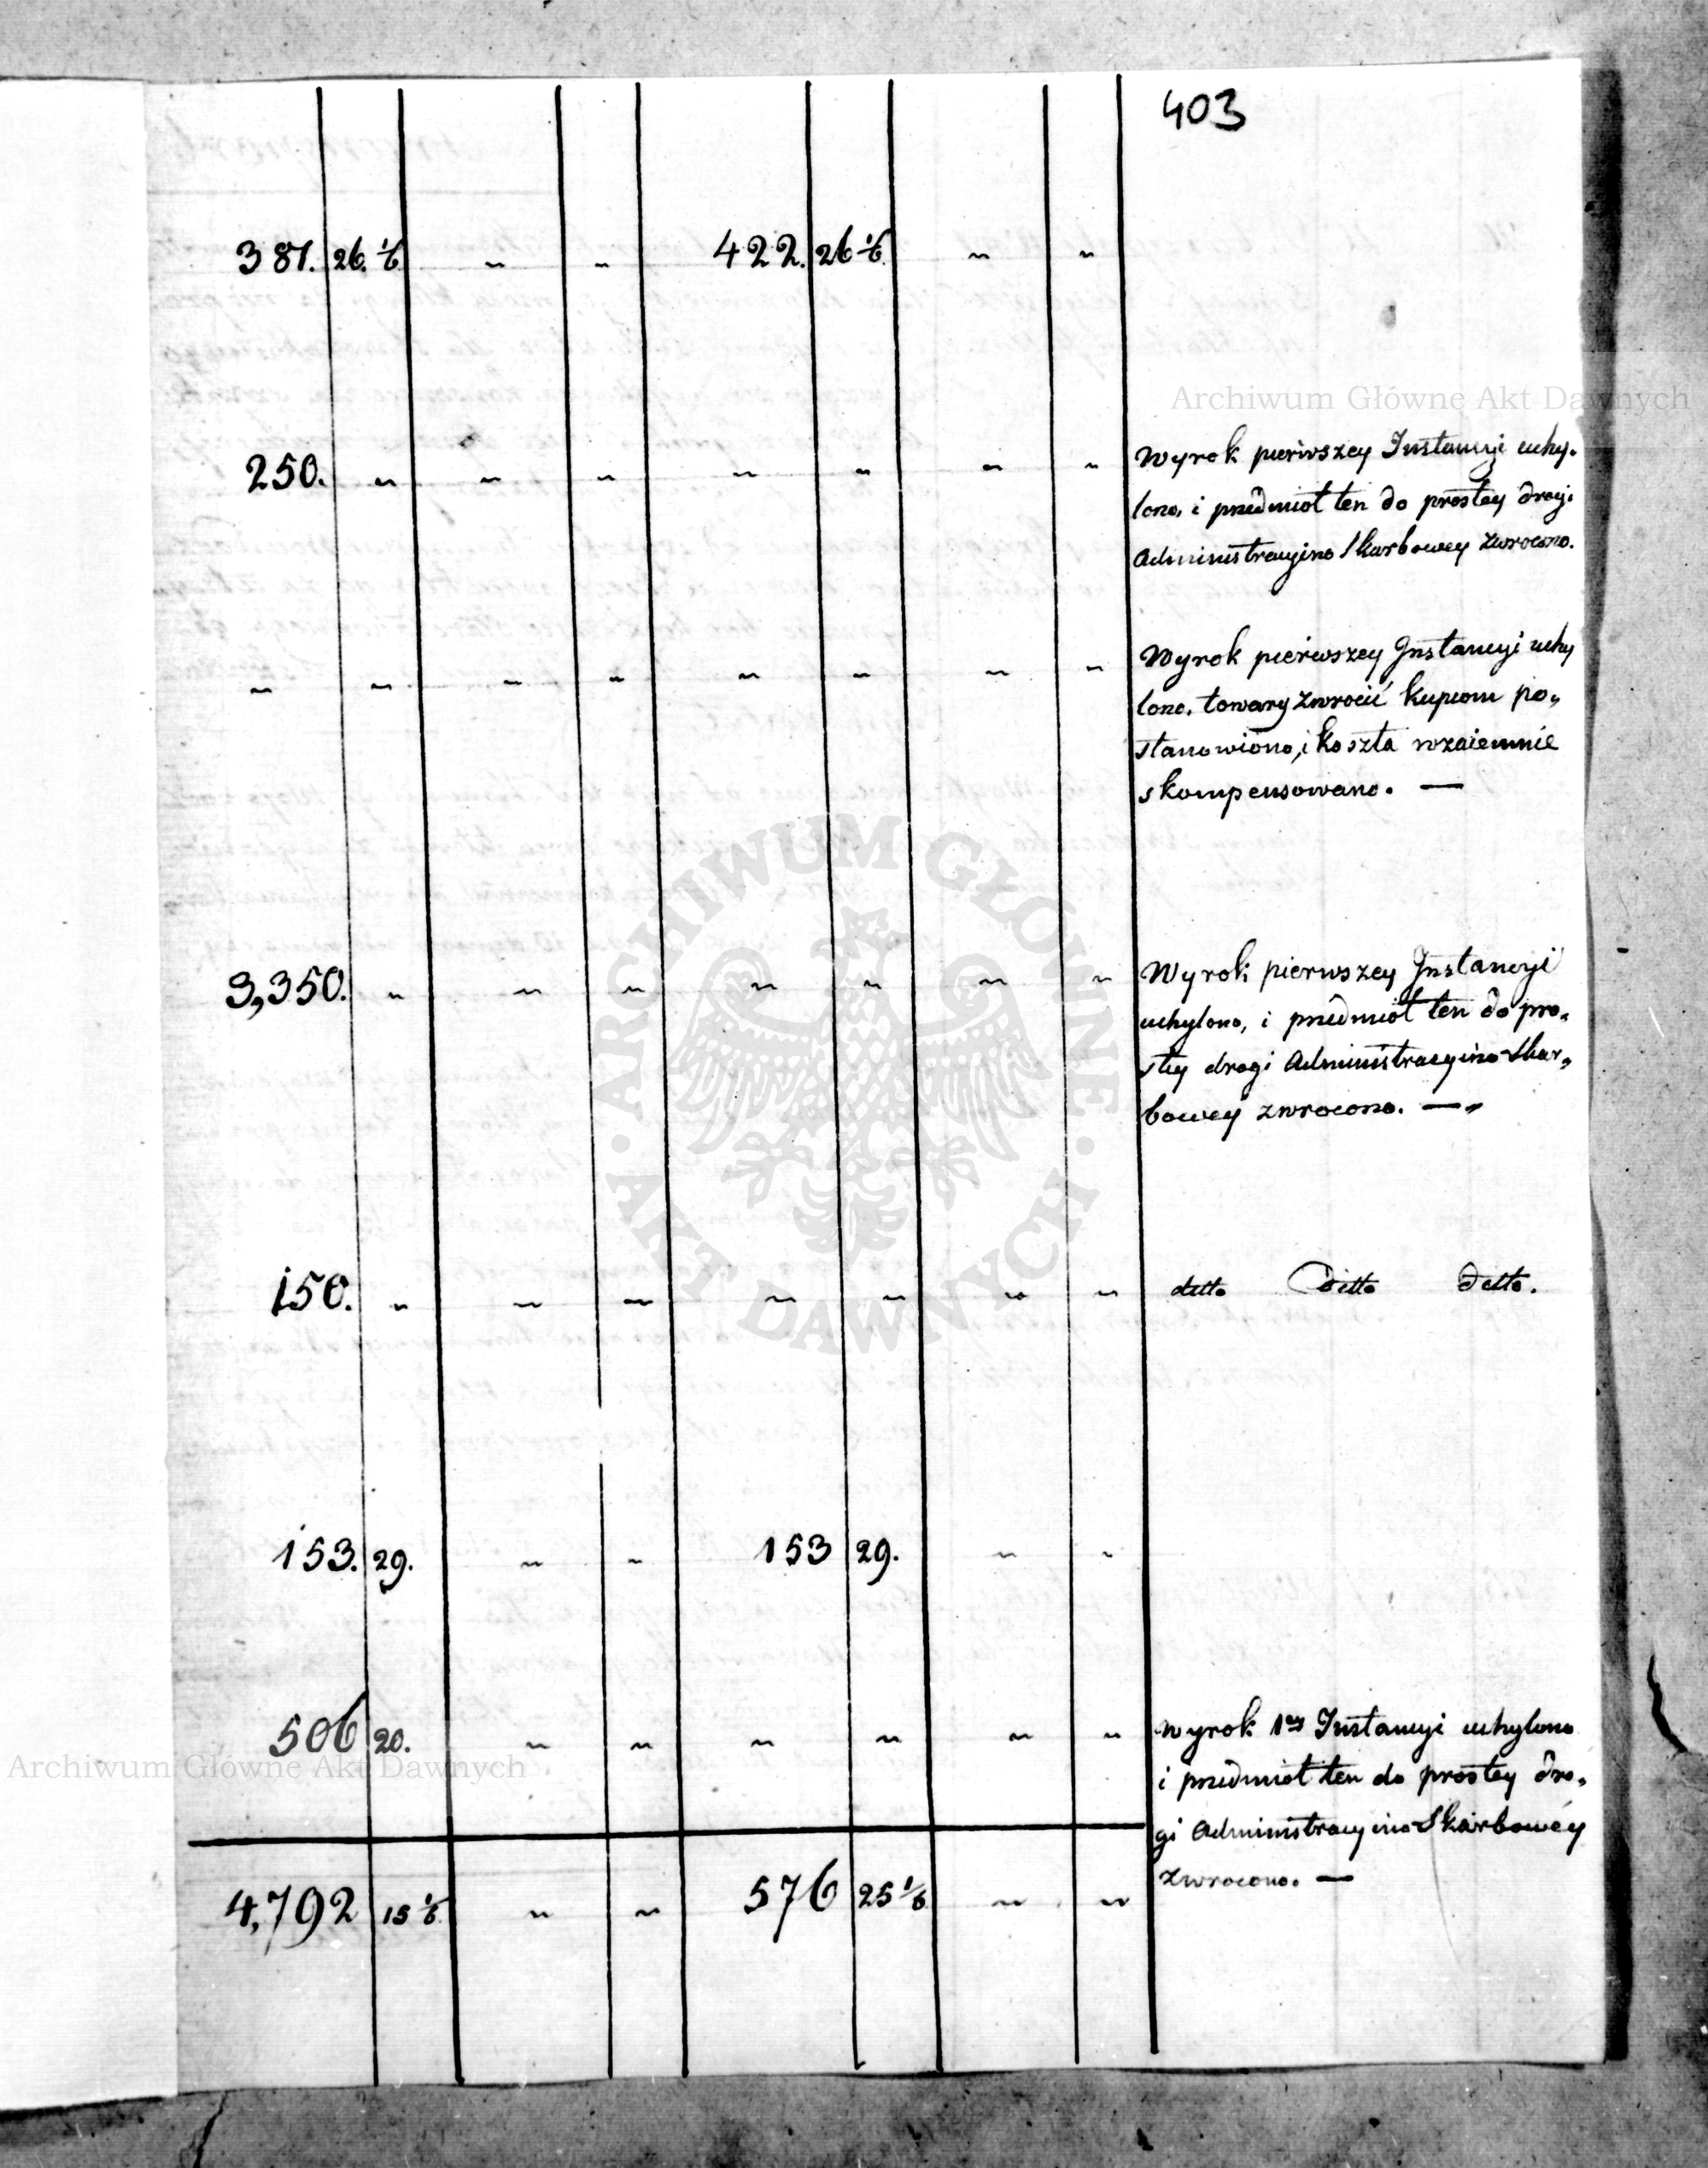 403
381. 26. 1/6 ~ ~ 422. 26 1/6 ~ ~
Archiwum Główne Akt Dawnych
250. ~ ~ ~ ~ ~ ~ ~ Wyrok pierwszey Instancyi uchy-
lono, i przedmiot ten do prostey drogi
Administracyino Skarbowey zwrocono.
~ ~ ~ ~ ~ ~ ~ ~ Wyrok pierwszey Instancyi uchy
lono, towary zwrocić kupcom po„
stanowiono, i koszta wzaiemnie
skompensowano. —
3,350. ~ ~ ~ ~ ~ ~ ~ Wyrok pierwszey Instancyi
uchylono, i przedmiot ten do pro„
stey drogi Administracyino Skar„
bowey zwrocono. —„
150. ~ ~ ~ ~ ~ ~ ~ detto Detto Detto.
153. 29. ~ ~ 153 29. ~ ~
506 20. ~ ~ ~ ~ ~ ~ Wyrok 1ey Instancyi uchylono
i przedmiot ten do prostey dro„
gi Administracyino Skarbowéy
zwrocono. —
4,792 15 1/6 ~ ~ 576 25 1/6 ~ ~
ARCHIWUM GŁÓWNE
· AKT DAWNYCH ·
Archiwum Główne Akt Dawnych